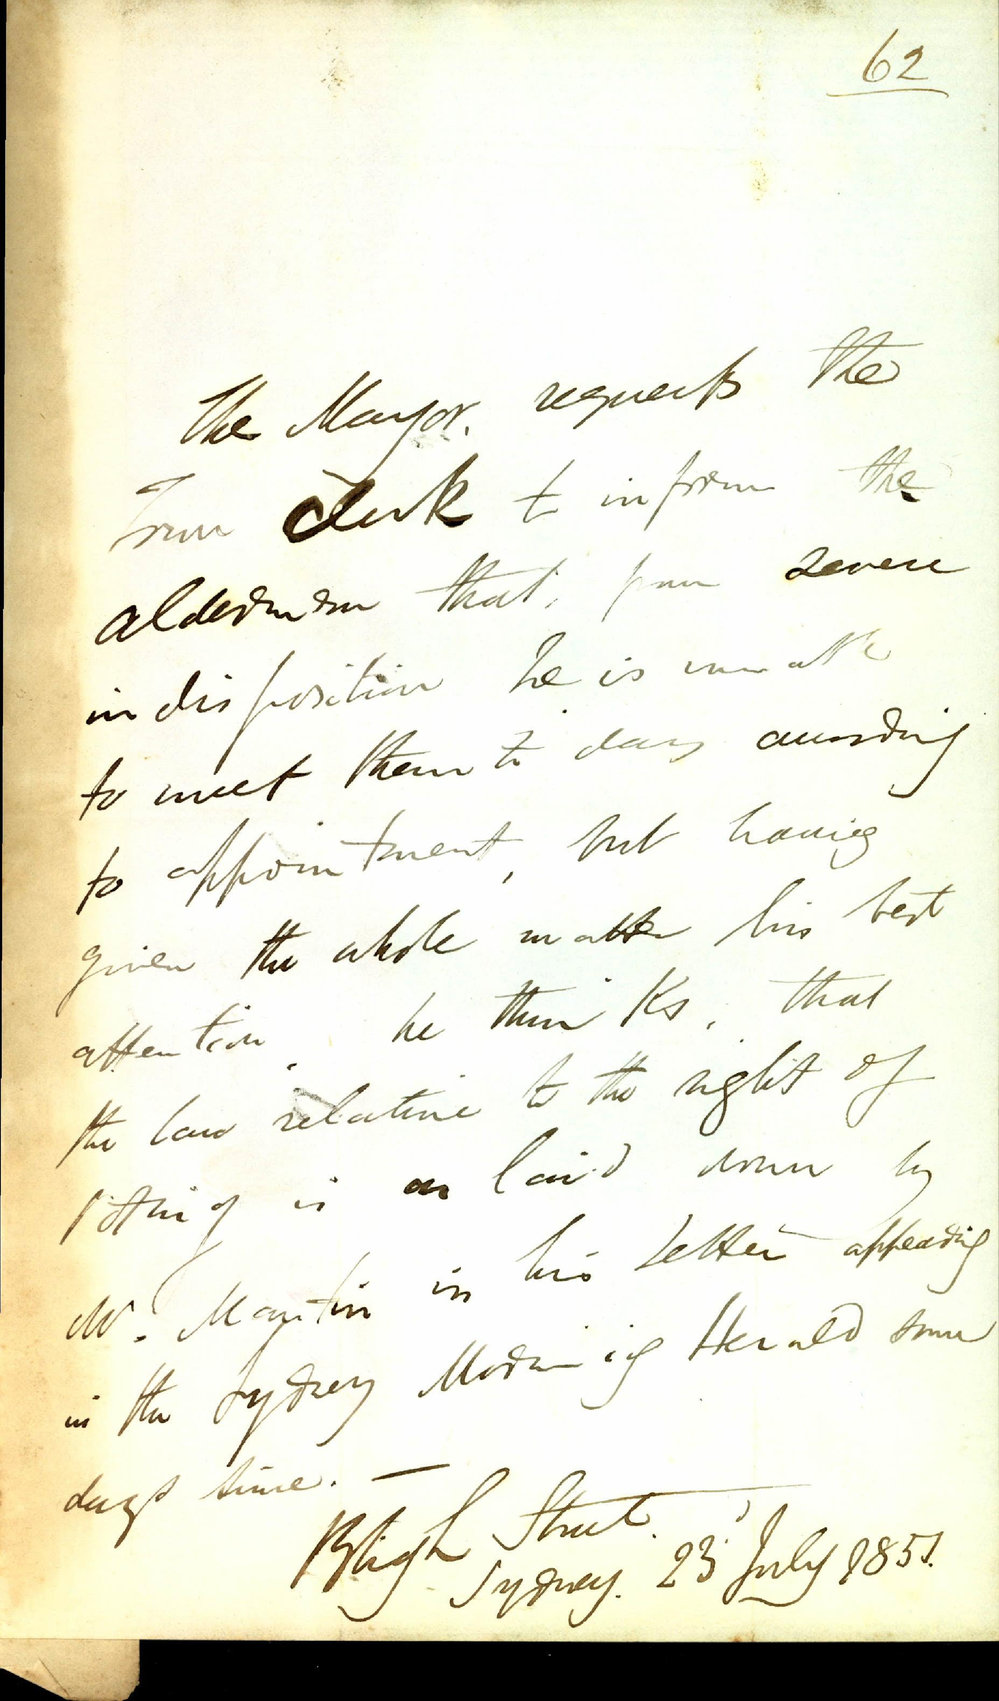 62
The Mayor. requests the
Town Clerk to inform the
aldermen that, from severe
indisposition he is unable
to meet them to day according
to appointment, but having
given the whole matter his best
attention, he thinks, that
the law relative to the right of
voting is as laid down by
Mr. Martin in his letter appearing
in the Sydney Morning Herald some
days since. —
Bligh Street.
Sydney. 23 July 1851.